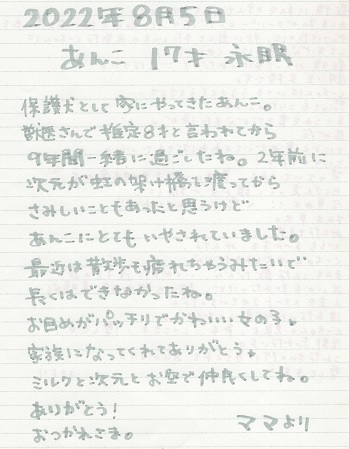 2022年8月5日
あんこ 17才 永眠
保護犬として家にやってきたあんこ。
獣医さんで推定8才と言われてから
9年間一緒に過ごしたね。2年前に
次元が虹の架け橋を渡ってから
さみしいこともあったと思うけど
あんこにとてもいやされていました。
最近は散歩も疲れちゃうみたいで
長くはできなかったね。
お目めがパッチリでかわいい女の子。
家族になってくれてありがとう。
ミルクと次元とお空で仲良くしてね。
ありがとう!
おつかれさま。
ママより